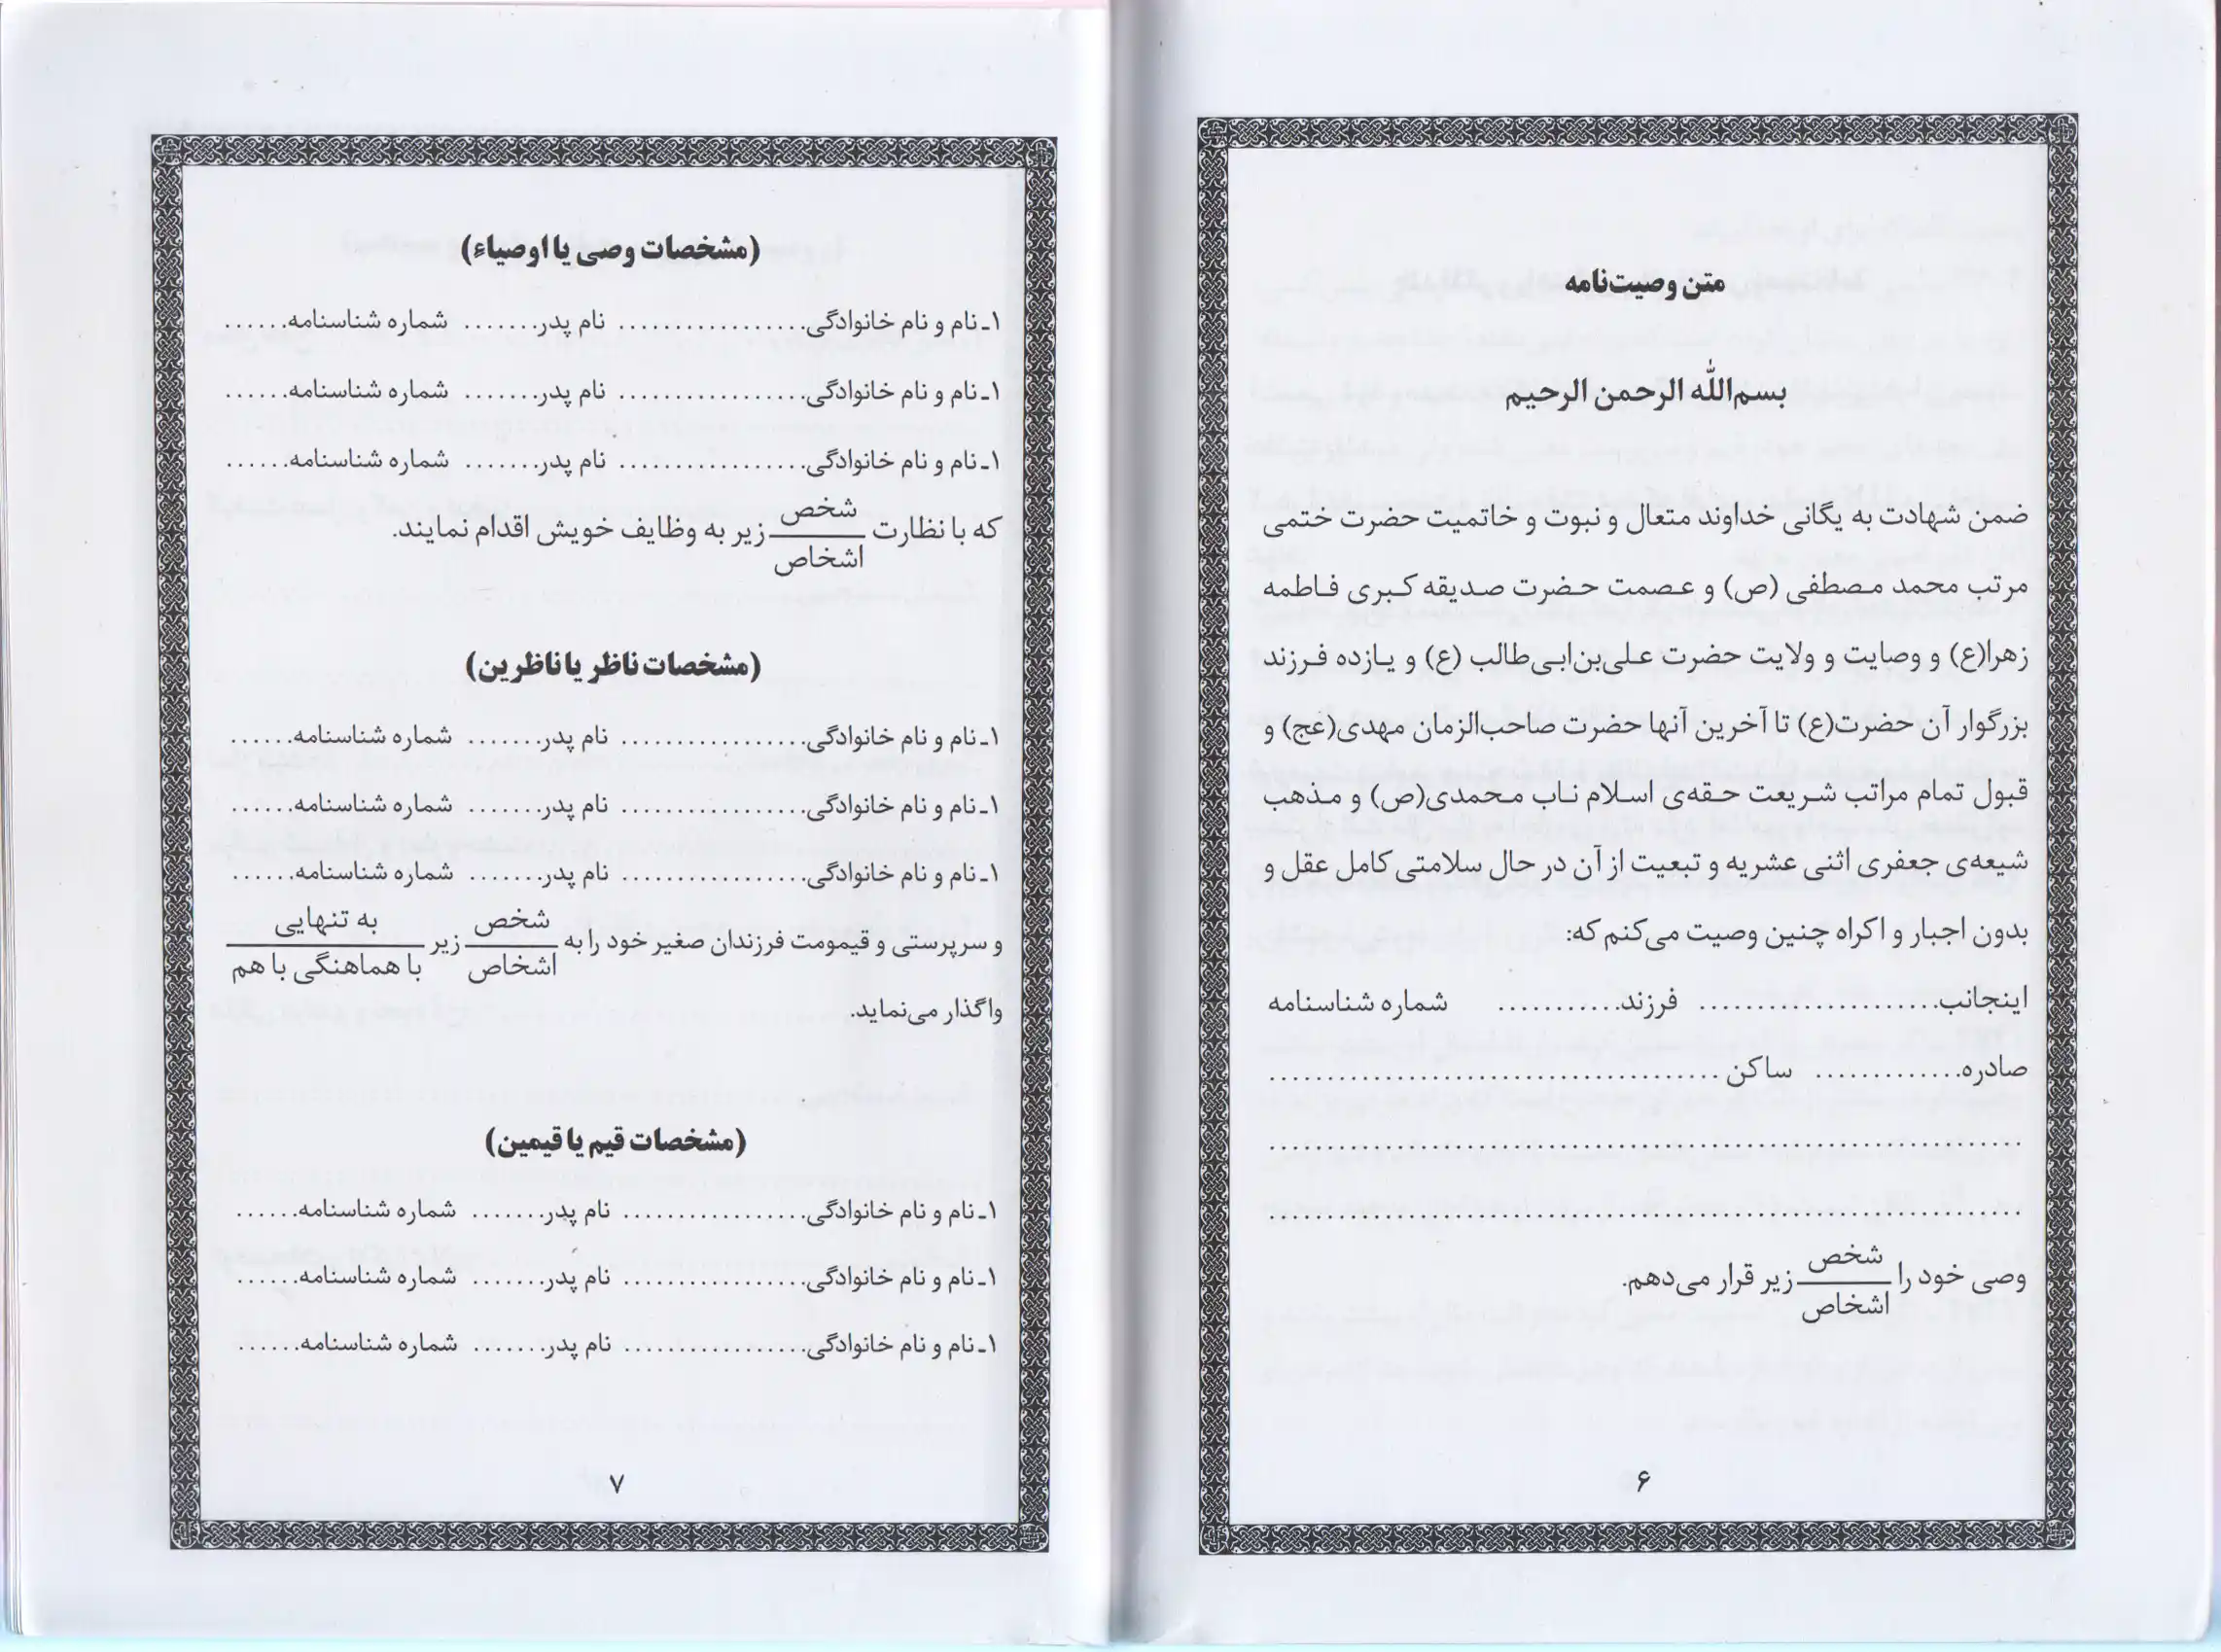 متن وصیت‌نامه
بسم‌الله الرحمن الرحیم
ضمن شهادت به یگانی خداوند متعال و نبوت و خاتمیت حضرت ختمی
مرتب محمد مصطفی (ص) و عصمت حضرت صدیقه کبری فاطمه
زهرا(ع) و وصایت و ولایت حضرت علی‌بن‌ابی‌طالب (ع) و یازده فرزند
بزرگوار آن حضرت(ع) تا آخرین آنها حضرت صاحب‌الزمان مهدی(عج) و
قبول تمام مراتب شریعت حقه‌ی اسلام ناب محمدی(ص) و مذهب
شیعه‌ی جعفری اثنی عشریه و تبعیت از آن در حال سلامتی کامل عقل و
بدون اجبار و اکراه چنین وصیت می‌کنم که:
اینجانب..................... فرزند........... شماره شناسنامه
صادره............. ساکن .......................................
..................................................................
..................................................................
وصی خود را شخص/اشخاص زیر قرار می‌دهم.
۶
(مشخصات وصی یا اوصیاء)
۱ـ نام و نام خانوادگی................. نام پدر....... شماره شناسنامه......
۱ـ نام و نام خانوادگی................. نام پدر....... شماره شناسنامه......
۱ـ نام و نام خانوادگی................. نام پدر....... شماره شناسنامه......
که با نظارت شخص/اشخاص زیر به وظایف خویش اقدام نمایند.
(مشخصات ناظر یا ناظرین)
۱ـ نام و نام خانوادگی................. نام پدر....... شماره شناسنامه......
۱ـ نام و نام خانوادگی................. نام پدر....... شماره شناسنامه......
۱ـ نام و نام خانوادگی................. نام پدر....... شماره شناسنامه......
و سرپرستی و قیمومت فرزندان صغیر خود را به شخص/اشخاص زیر به تنهایی/با هماهنگی با هم
واگذار می‌نماید.
(مشخصات قیم یا قیمین)
۱ـ نام و نام خانوادگی................. نام پدر....... شماره شناسنامه......
۱ـ نام و نام خانوادگی................. نام پدر....... شماره شناسنامه......
۱ـ نام و نام خانوادگی................. نام پدر....... شماره شناسنامه......
۷